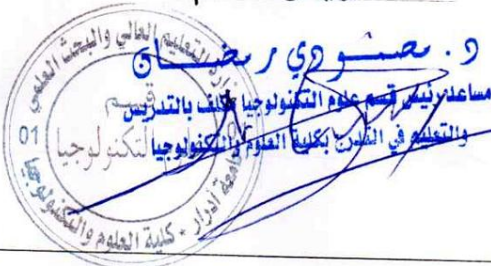 د. مصمودي رمضان
مساعد رئيس قسم علوم التكنولوجيا مكلف بالتدريس
والتعليم في التدرج بكلية العلوم والتكنولوجيا
وزارة التعليم العالي والبحث العلمي
قسم
التكنولوجيا
01
جامعة أدرار * كلية العلوم والتكنولوجيا